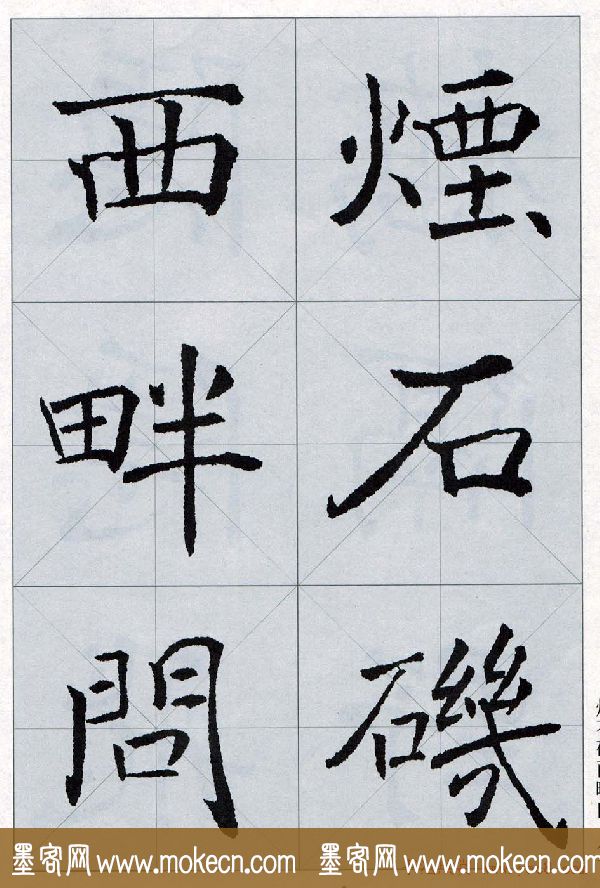 煙石磯
西畔問
墨客网 www.mokecn.com 墨客网 www.mokecn.com